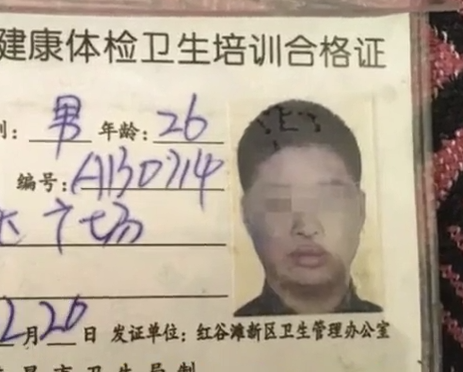 健康体检卫生培训合格证
别: 男 年龄: 26
编号: A1130714
广场
2月20日 发证单位: 红谷滩新区卫生管理办公室
昌市卫生局制